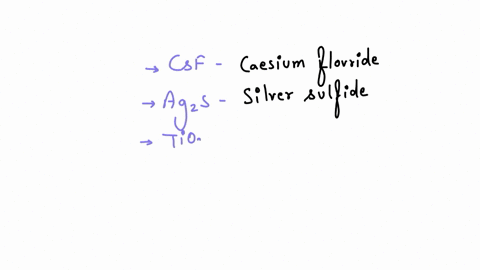 → CsF - Caesium flouride
→ Ag₂S - Silver sulfide
→ TiO